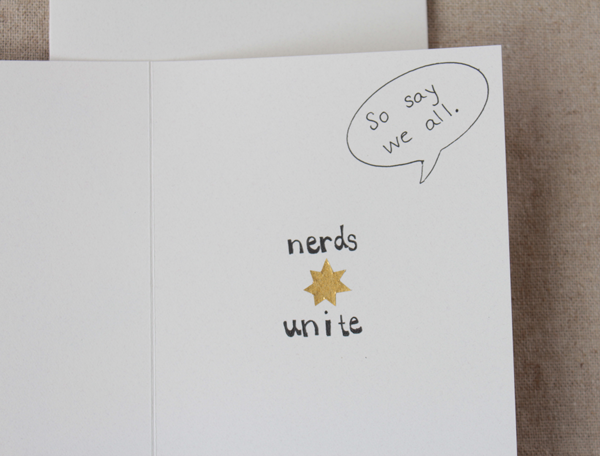 So say
we all.
nerds
unite